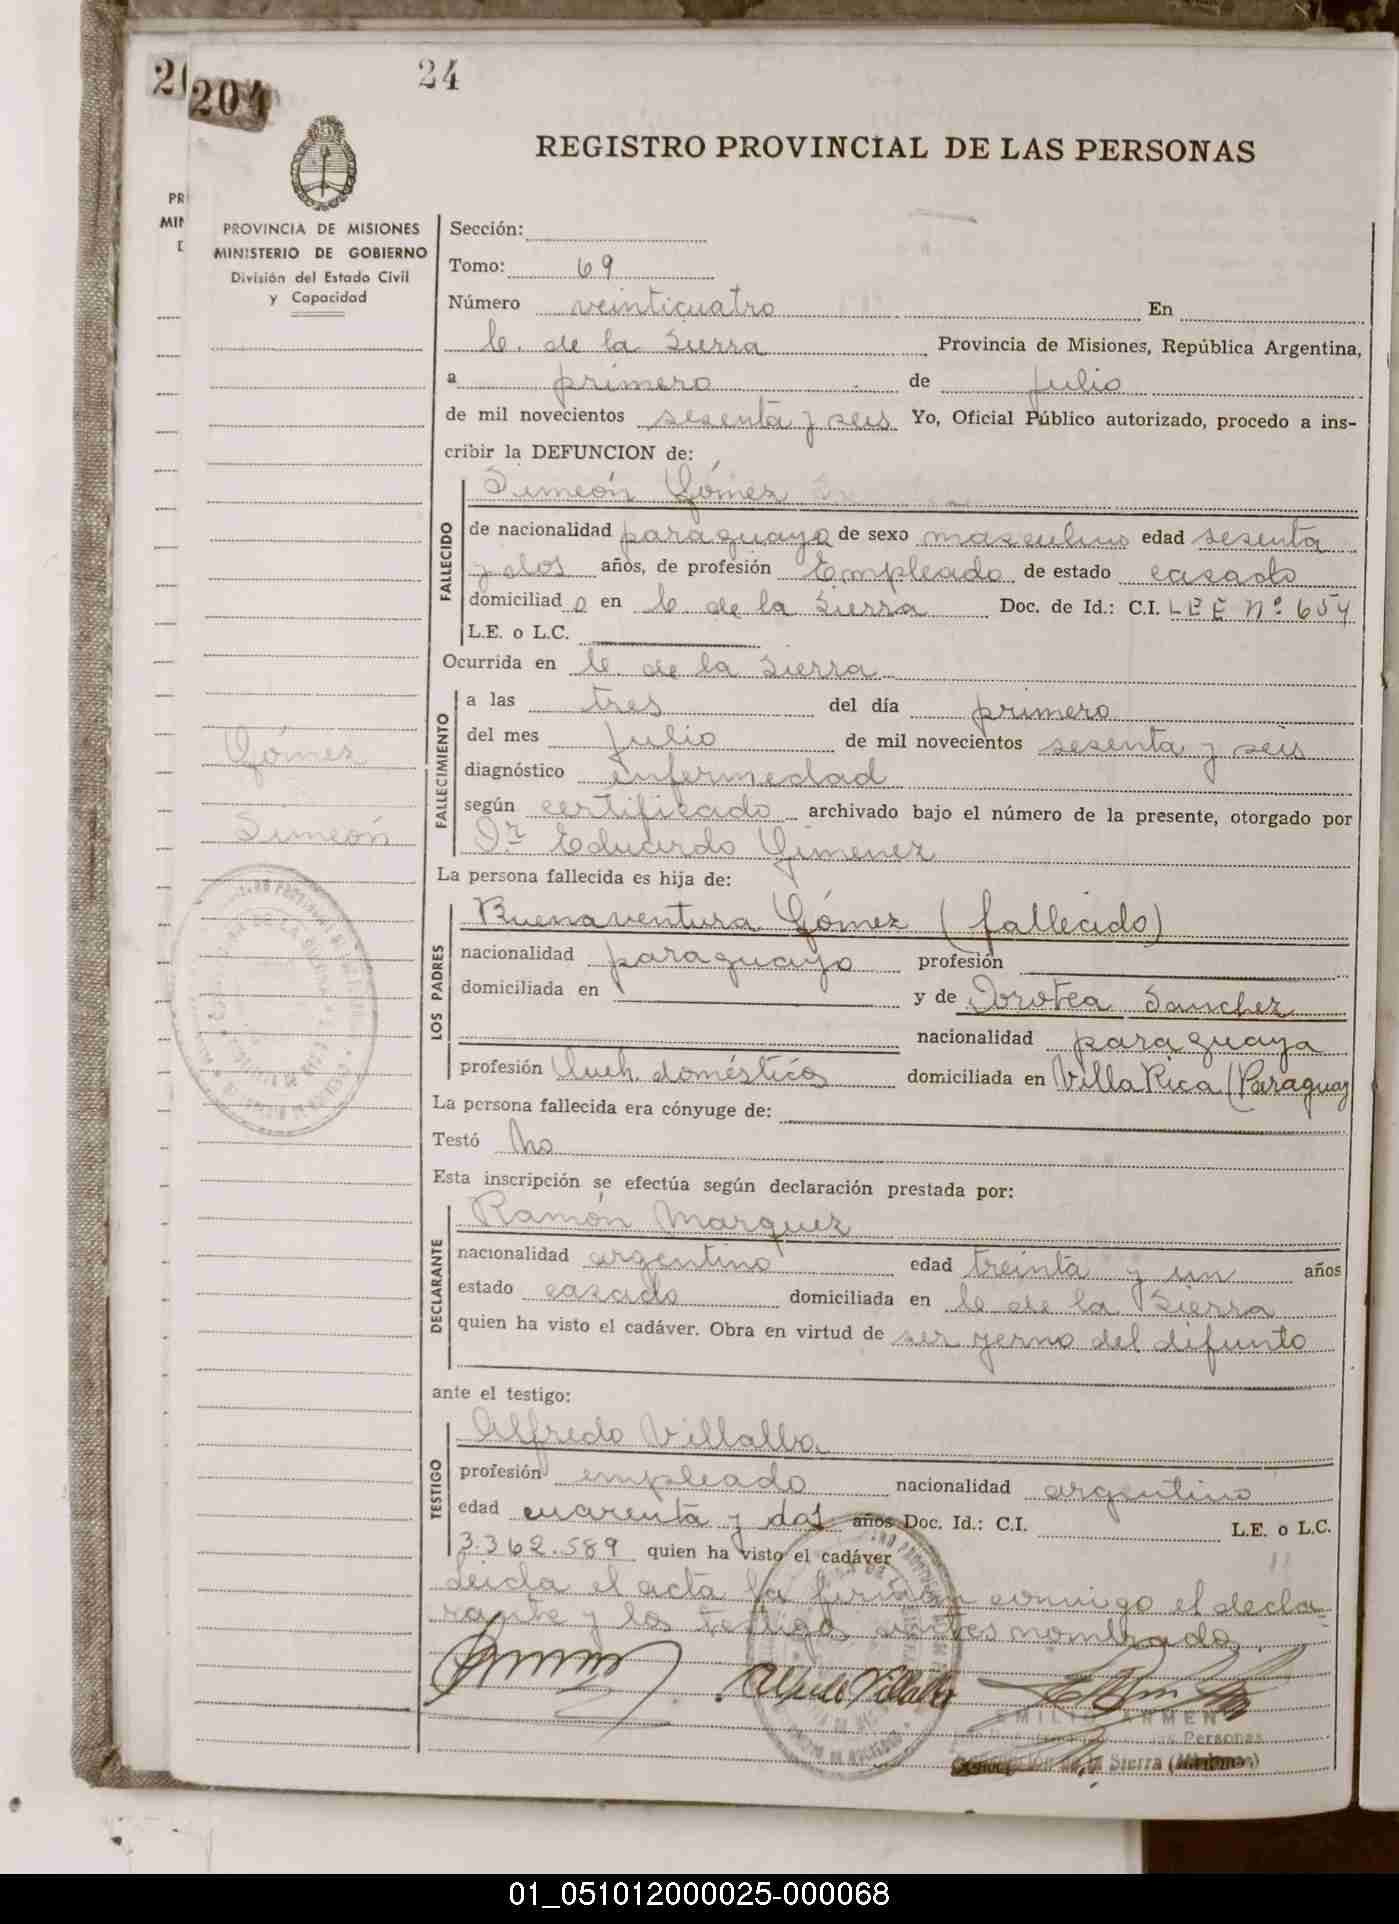 204
24
REGISTRO PROVINCIAL DE LAS PERSONAS
PROVINCIA DE MISIONES
MINISTERIO DE GOBIERNO
División del Estado Civil
y Capacidad
Sección:
Tomo: 69
Número veinticuatro En
C. de la Sierra Provincia de Misiones, República Argentina,
a primero de julio
de mil novecientos sesenta y seis Yo, Oficial Público autorizado, procedo a ins-
cribir la DEFUNCION de:
Simeón Gómez
FALLECIDO
de nacionalidad paraguaya de sexo masculino edad sesenta
y dos años, de profesión Empleado de estado casado
domiciliado en C. de la Sierra Doc. de Id.: C.I. L E E Nº 654
L.E. o L.C.
Ocurrida en C. de la Sierra
FALLECIMIENTO
a las tres del día primero
del mes julio de mil novecientos sesenta y seis
diagnóstico enfermedad
según certificado archivado bajo el número de la presente, otorgado por
Dr Eduardo Gimenez
Gómez
Simeón
La persona fallecida es hija de:
LOS PADRES
Buenaventura Gómez (fallecido)
nacionalidad paraguayo profesión
domiciliada en y de Dorotea Sanchez
nacionalidad paraguaya
profesión Queh. domésticos domiciliada en Villa Rica (Paraguay
La persona fallecida era cónyuge de:
Testó No
Esta inscripción se efectúa según declaración prestada por:
DECLARANTE
Ramón Marquez
nacionalidad argentino edad treinta y un años
estado casado domiciliada en C. de la Sierra
quien ha visto el cadáver. Obra en virtud de ser yerno del difunto
ante el testigo:
TESTIGO
Alfredo Villalba
profesión empleado nacionalidad argentino
edad cuarenta y dos años Doc. Id.: C.I. L.E. o L.C.
3.362.589 quien ha visto el cadáver
Leida el acta la firman conmigo el decla-
rante y los testigos antes nombrados.
Alfredo Villalba
de las Personas
Concepción de la Sierra (Misiones)
01_051012000025-000068